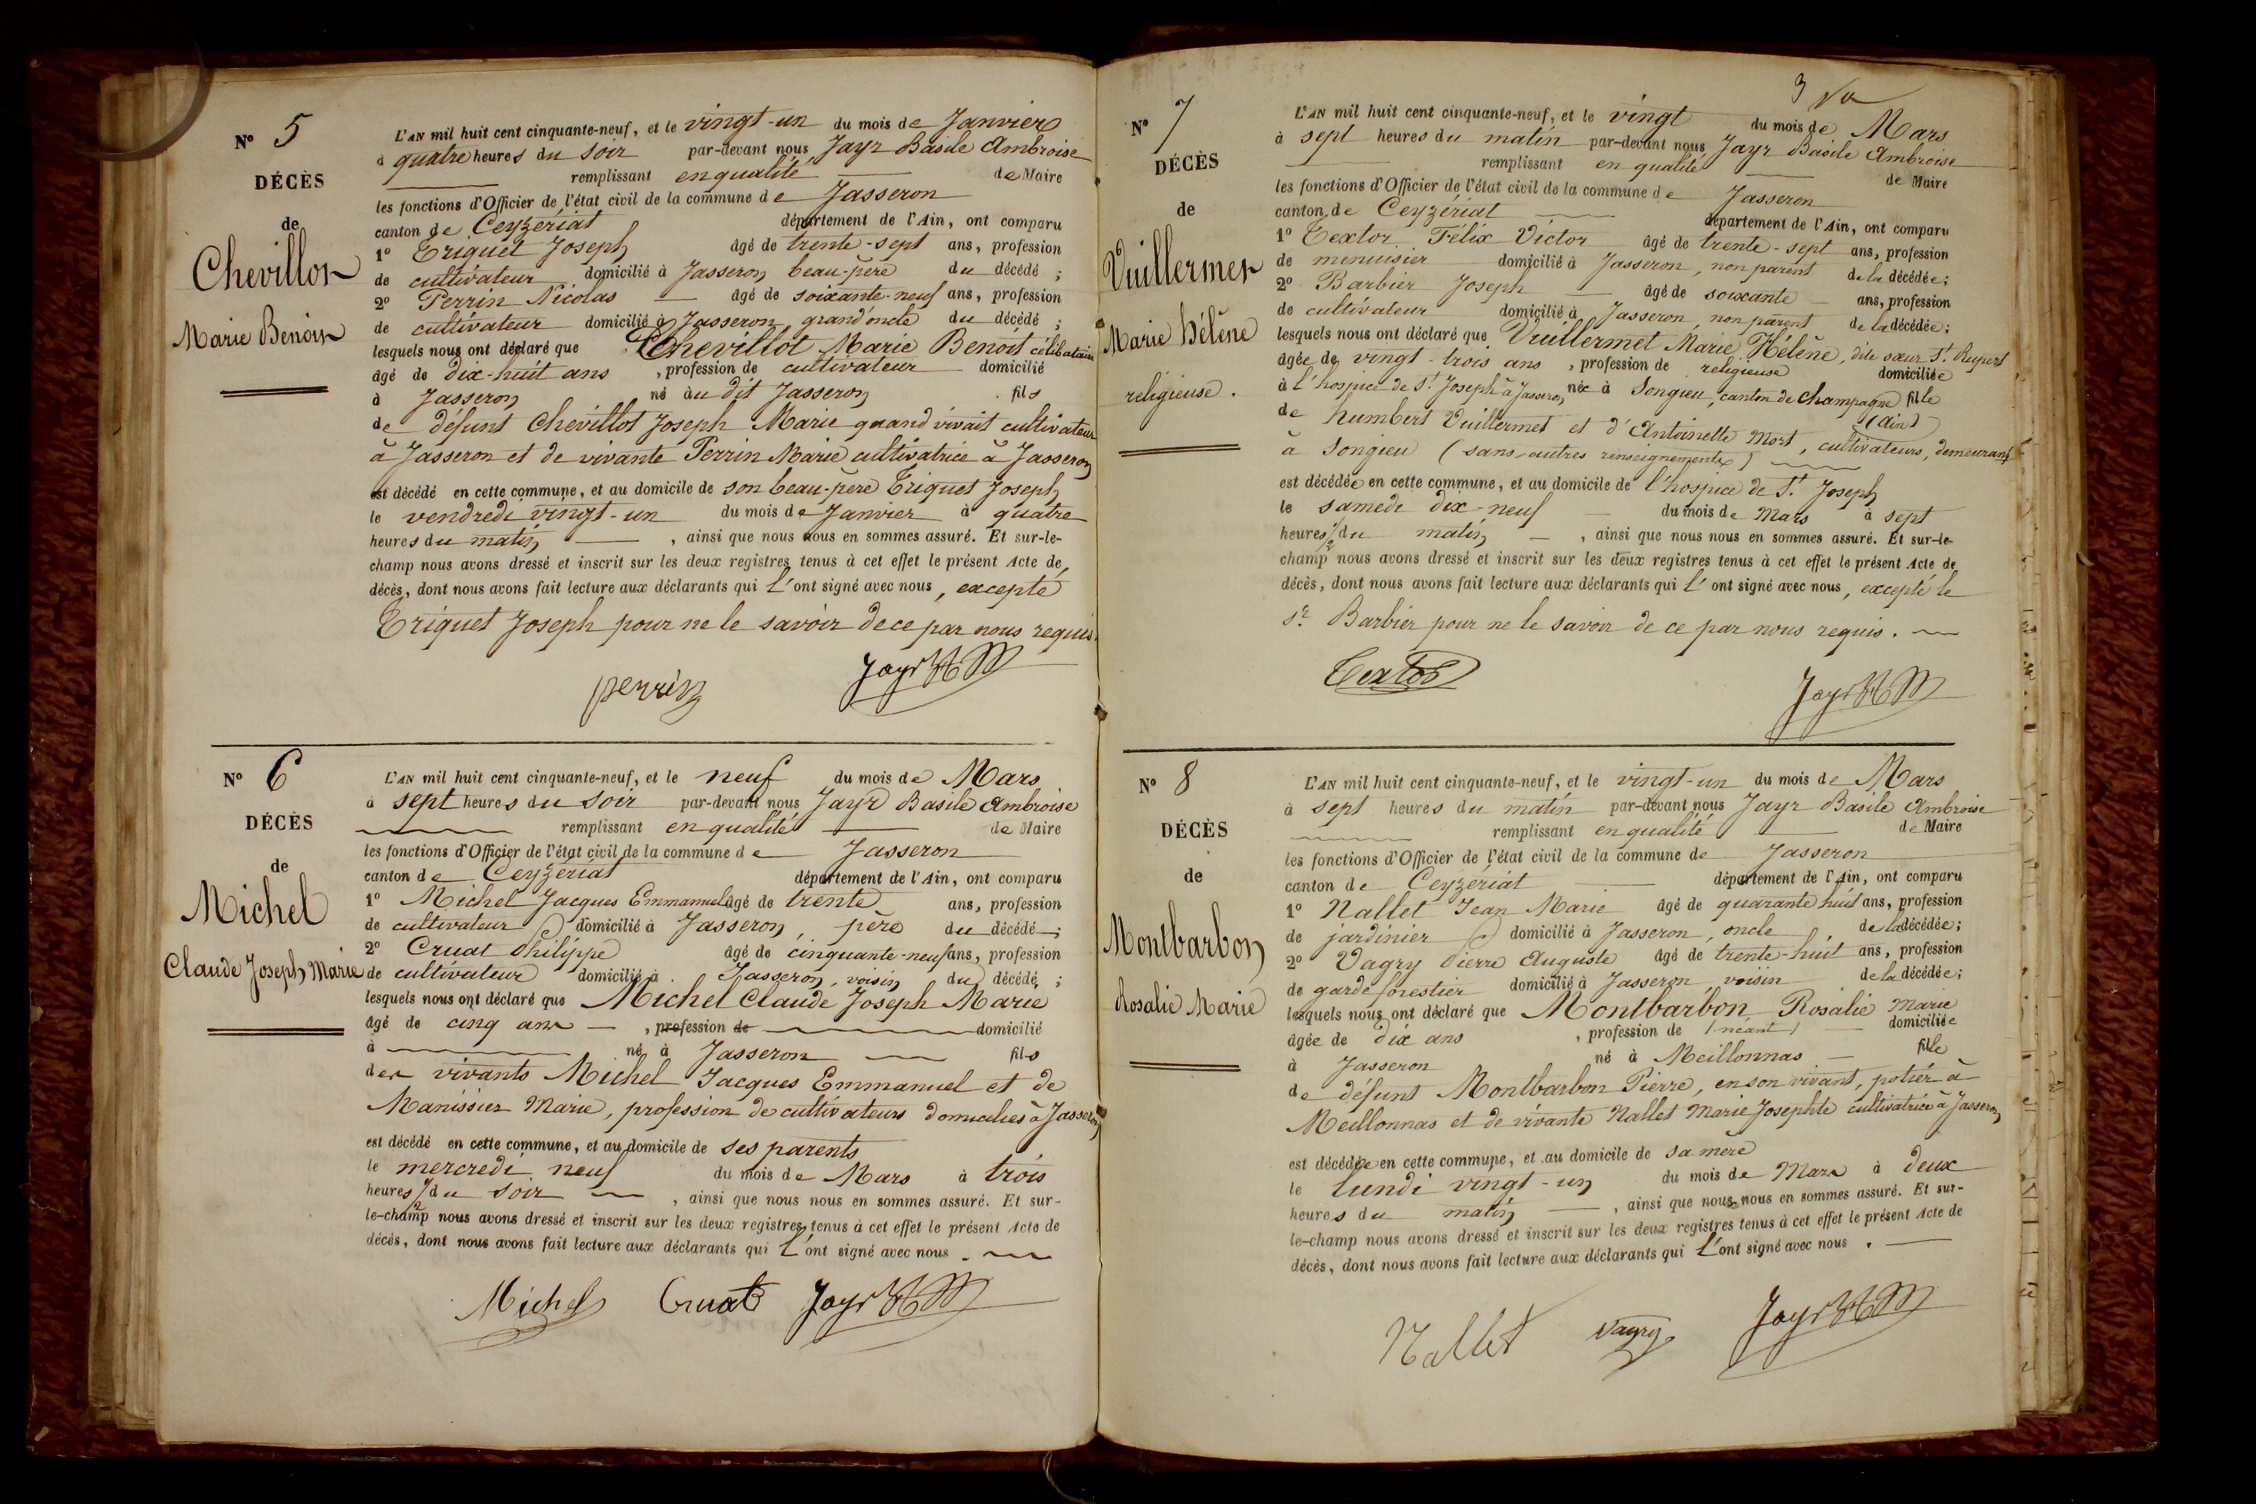 N° 5
DÉCÈS
de
Chevillot
Marie Benoit
L'AN mil huit cent cinquante-neuf, et le vingt-un du mois de Janvier
à quatre heures du soir par-devant nous Jayr Basile Ambroise
remplissant en qualité de Maire
les fonctions d'Officier de l'état civil de la commune de Jasseron
canton de Ceyzériat département de l'Ain, ont comparu
1° Triquet Joseph âgé de trente-sept ans, profession
de cultivateur domicilié à Jasseron beau-père du décédé ;
2° Perrin Nicolas âgé de soixante-neuf ans, profession
de cultivateur domicilié à Jasseron grand'oncle du décédé ;
lesquels nous ont déclaré que Chevillot Marie Benoit célibataire
âgé de dix-huit ans , profession de cultivateur domicilié
à Jasseron né au dit Jasseron fils
de défunt Chevillot Joseph Marie quand vivait cultivateur
à Jasseron et de vivante Perrin Marie cultivatrice à Jasseron
est décédé en cette commune, et au domicile de son beau-père Triquet Joseph
le vendredi vingt-un du mois de Janvier à quatre
heures du matin , ainsi que nous nous en sommes assuré. Et sur-le-
champ nous avons dressé et inscrit sur les deux registres tenus à cet effet le présent Acte de
décès, dont nous avons fait lecture aux déclarants qui l'ont signé avec nous, excepté
Triquet Joseph pour ne le savoir de ce par nous requis.
perrin Jayr
N° 6
DÉCÈS
de
Michel
Claude Joseph Marie
L'AN mil huit cent cinquante-neuf, et le neuf du mois de Mars
à sept heures du soir par-devant nous Jayr Basile Ambroise
remplissant en qualité de Maire
les fonctions d'Officier de l'état civil de la commune de Jasseron
canton de Ceyzériat département de l'Ain, ont comparu
1° Michel Jacques Emmanuel âgé de trente ans, profession
de cultivateur domicilié à Jasseron, père du décédé ;
2° Cruat Philippe âgé de cinquante-neuf ans, profession
de cultivateur domicilié à Jasseron, voisin du décédé ;
lesquels nous ont déclaré que Michel Claude Joseph Marie
âgé de cinq ans , profession de domicilié
à né à Jasseron fils
des vivants Michel Jacques Emmanuel et de
Manissier Marie, profession de cultivateurs domiciliés à Jasseron
est décédé en cette commune, et au domicile de ses parents
le mercredi neuf du mois de Mars à trois
heures 1/2 du soir , ainsi que nous nous en sommes assuré. Et sur-
le-champ nous avons dressé et inscrit sur les deux registres tenus à cet effet le présent Acte de
décès, dont nous avons fait lecture aux déclarants qui l'ont signé avec nous.
Michel Cruat Jayr
3
N° 7
DÉCÈS
de
Vuillermet
Marie Hélène
religieuse.
L'AN mil huit cent cinquante-neuf, et le vingt du mois de Mars
à sept heures du matin par-devant nous Jayr Basile Ambroise
remplissant en qualité de Maire
les fonctions d'Officier de l'état civil de la commune de Jasseron
canton de Ceyzériat département de l'Ain, ont comparu
1° Textor Félix Victor âgé de trente-sept ans, profession
de menuisier domicilié à Jasseron, non parent de la décédée ;
2° Barbier Joseph âgé de soixante ans, profession
de cultivateur domicilié à Jasseron, non parent de la décédée ;
lesquels nous ont déclaré que Vuillermet Marie Hélène, dite sœur St. Rupert
âgée de vingt-trois ans , profession de religieuse domiciliée
à l'hospice de St. Joseph à Jasseron née à Songieu, canton de Champagne fille
(Ain)
de humbert Vuillermet et d'Antoinette Mort, cultivateurs, demeurant
à Songieu (sans autres renseignements)
est décédée en cette commune, et au domicile de l'hospice de St. Joseph
le samedi dix-neuf du mois de Mars à sept
heures 1/2 du matin , ainsi que nous nous en sommes assuré. Et sur-le-
champ nous avons dressé et inscrit sur les deux registres tenus à cet effet le présent Acte de
décès, dont nous avons fait lecture aux déclarants qui l'ont signé avec nous, excepté le
sr. Barbier pour ne le savoir de ce par nous requis.
Textor Jayr
N° 8
DÉCÈS
de
Montbarbon
Rosalie Marie
L'AN mil huit cent cinquante-neuf, et le vingt-un du mois de Mars
à sept heures du matin par-devant nous Jayr Basile Ambroise
remplissant en qualité de Maire
les fonctions d'Officier de l'état civil de la commune de Jasseron
canton de Ceyzériat département de l'Ain, ont comparu
1° Nallet Jean Marie âgé de quarante huit ans, profession
de jardinier domicilié à Jasseron, oncle, de la décédée ;
2° Vagry Pierre Auguste âgé de trente-huit ans, profession
de garde forestier domicilié à Jasseron, voisin de la décédée ;
lesquels nous ont déclaré que Montbarbon Rosalie Marie
âgée de dix ans , profession de (néant) domiciliée
à Jasseron né à Meillonnas fille
de défunt Montbarbon Pierre, en son vivant, potier à
Meillonnas et de vivante Nallet Marie Josephte cultivatrice à Jasseron
est décédée en cette commune, et au domicile de sa mère
le lundi vingt-un du mois de Mars à deux
heures du matin , ainsi que nous nous en sommes assuré. Et sur-
le-champ nous avons dressé et inscrit sur les deux registres tenus à cet effet le présent Acte de
décès, dont nous avons fait lecture aux déclarants qui l'ont signé avec nous.
Nallet Vagry Jayr